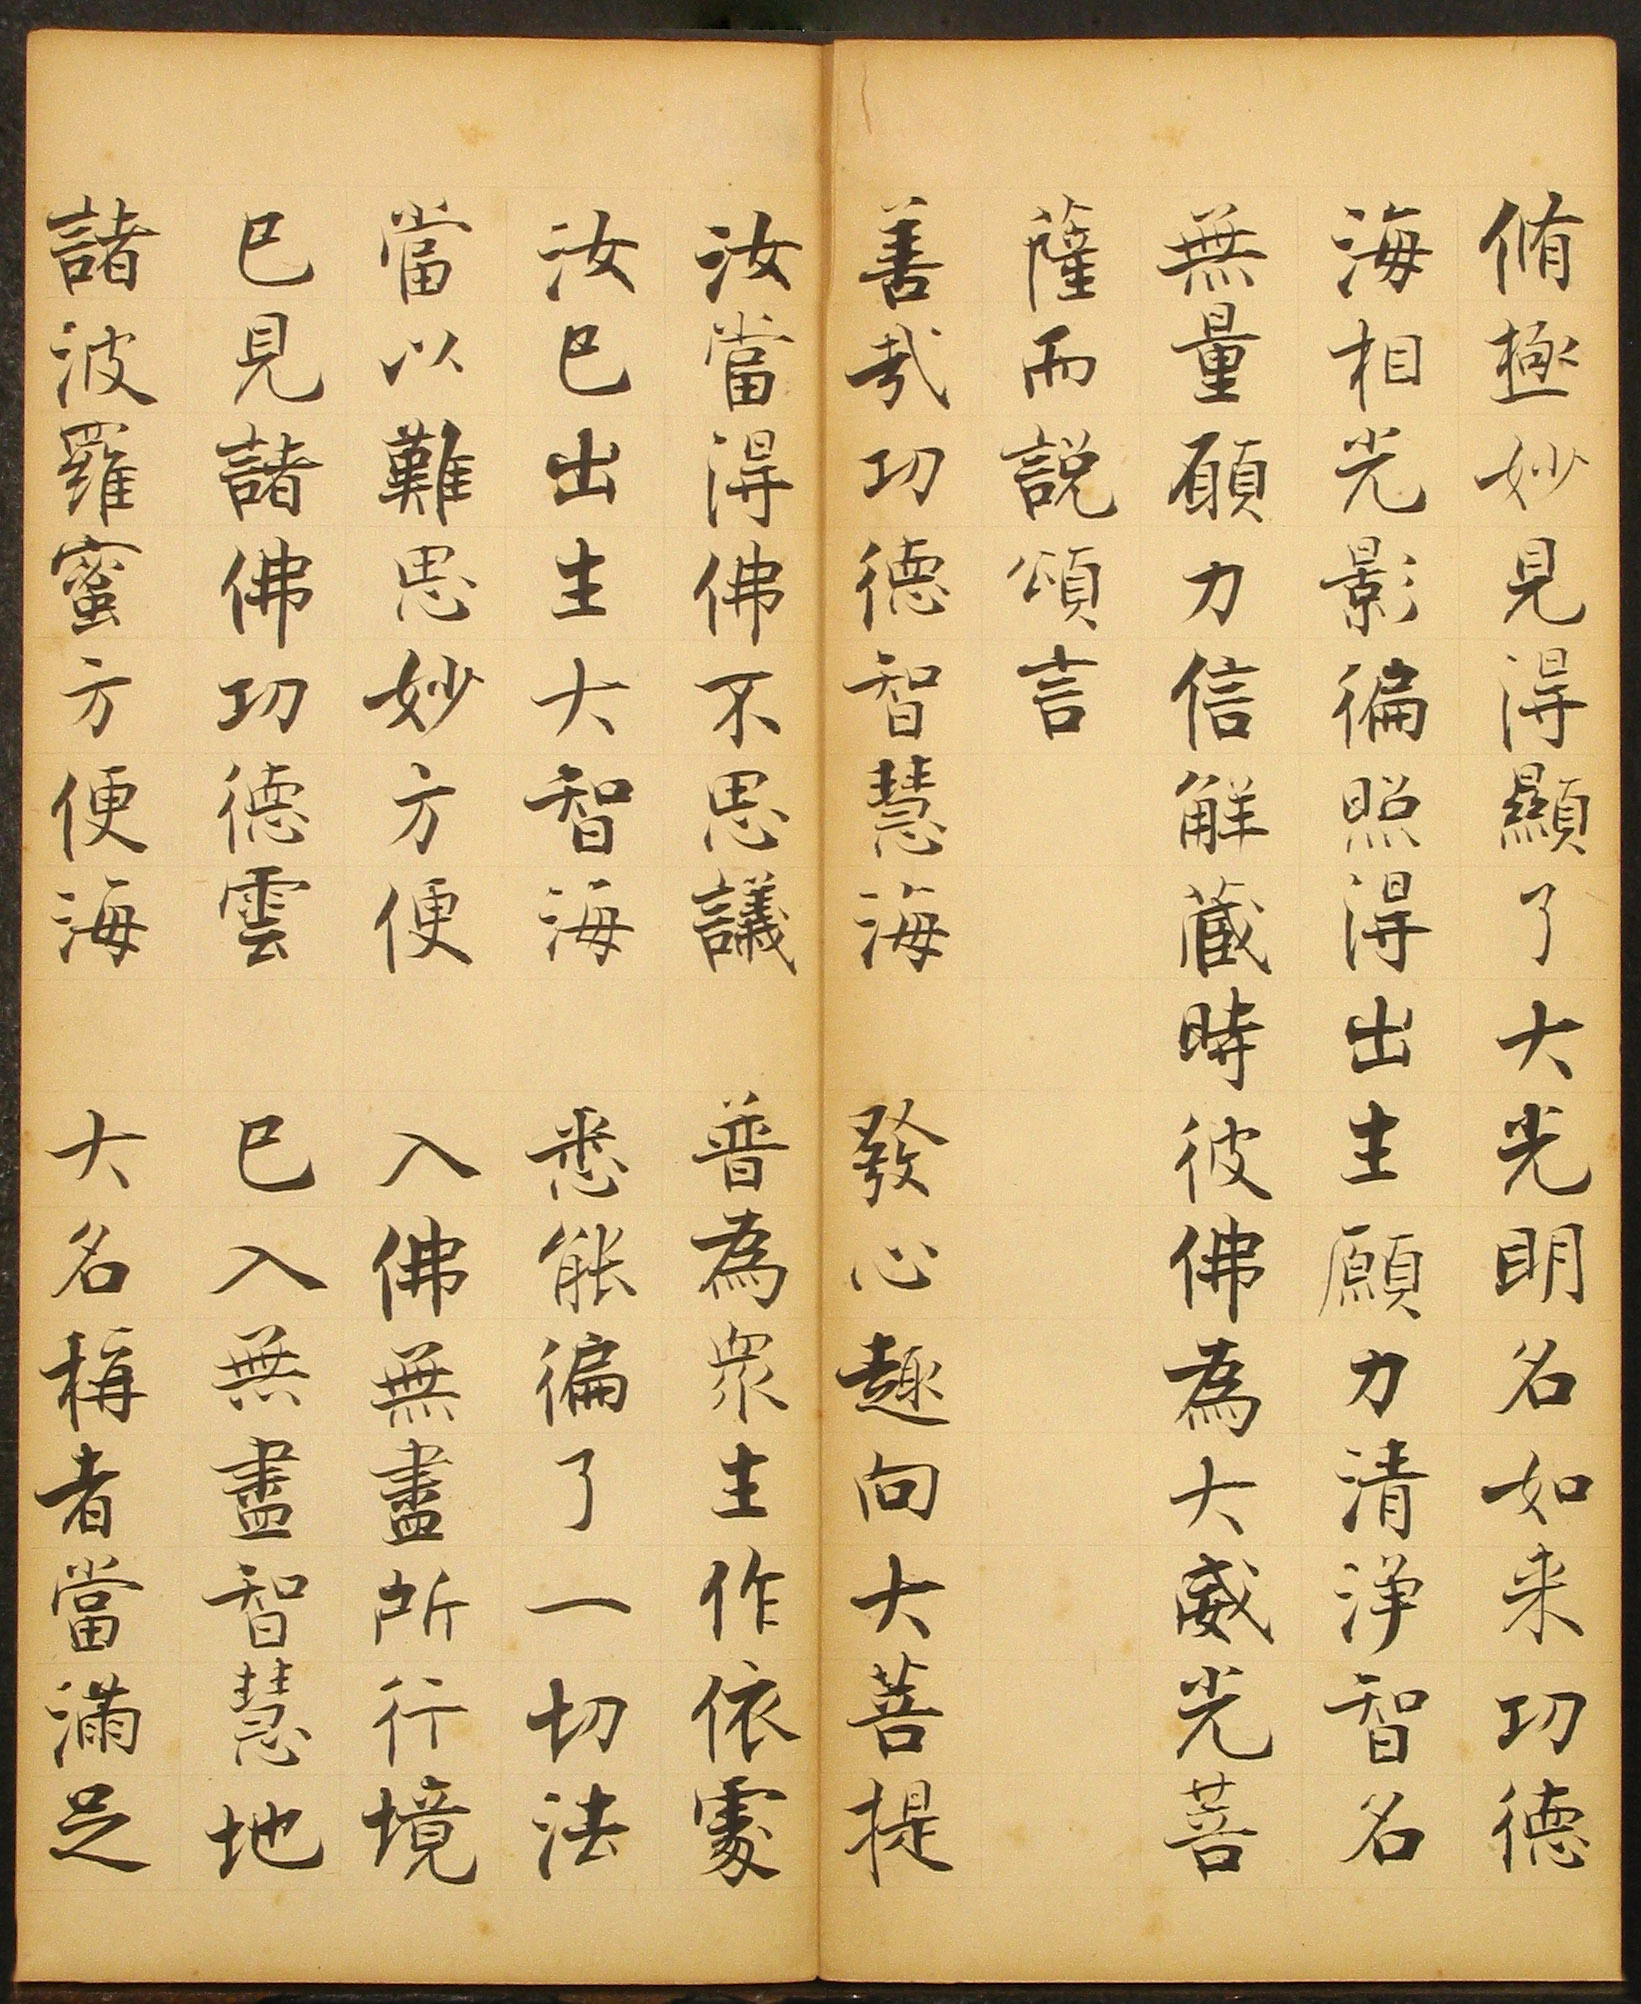 脩極妙見得顯了大光明名如来功德
海相光影徧照得出生願力清淨智名
無量願力信解藏時彼佛為大威光菩
薩而說頌言
善哉功德智慧海　發心趣向大菩提
汝當得佛不思議　普為眾生作依處
汝已出生大智海　悉能徧了一切法
當以難思妙方便　入佛無盡所行境
已見諸佛功德雲　已入無盡智慧地
諸波羅蜜方便海　大名稱者當滿足